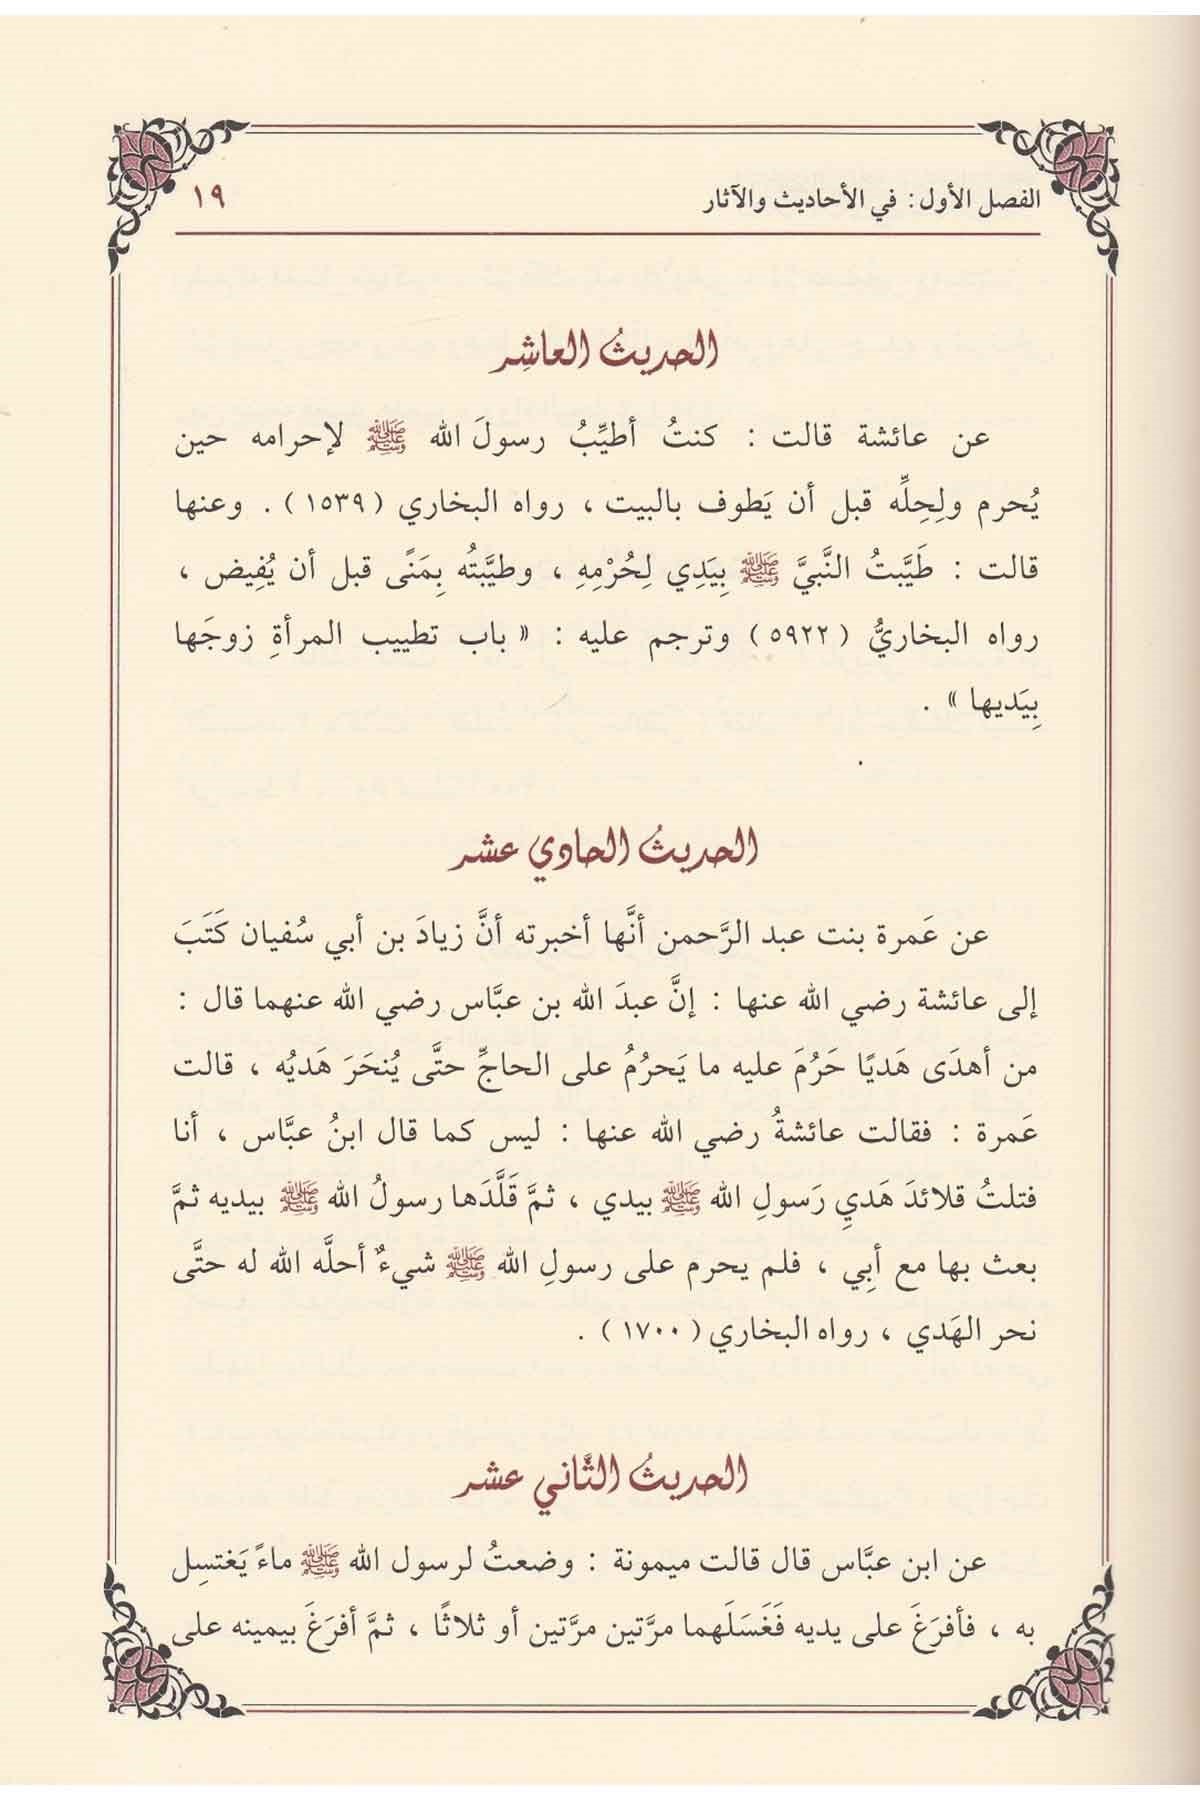 الفصل الأول: في الأحاديث والآثار
١٩
الحديثُ العاشِر
عن عائشة قالت : كنتُ أطيِّبُ رسولَ الله ﷺ لإحرامه حين
يُحرم ولِحِلِّه قبل أن يَطوف بالبيت ، رواه البخاري (١٥٣٩) . وعنها
قالت : طَيَّبتُ النَّبيَّ ﷺ بِيَدِي لِحُرْمِهِ ، وطيَّبتُه بِمَنًى قبل أن يُفِيض ،
رواه البخاريُّ (٥٩٢٢) وترجم عليه : « باب تطييب المرأةِ زوجَها
بِيَديها » .
الحديثُ الحادي عشر
عن عَمرة بنت عبد الرَّحمن أنَّها أخبرته أنَّ زيادَ بن أبي سُفيان كَتَبَ
إلى عائشة رضي الله عنها : إنَّ عبدَ الله بن عبَّاس رضي الله عنهما قال :
من أهدَى هَديًا حَرُمَ عليه ما يَحرُمُ على الحاجِّ حتَّى يُنحَرَ هَديُه ، قالت
عَمرة : فقالت عائشةُ رضي الله عنها : ليس كما قال ابنُ عبَّاس ، أنا
فتلتُ قلائدَ هَديِ رَسولِ الله ﷺ بيدي ، ثمَّ قَلَّدَها رسولُ الله ﷺ بيديه ثمَّ
بعث بها مع أبِي ، فلم يحرم على رسولِ الله ﷺ شيءٌ أحلَّه الله له حتَّى
نحر الهَدي ، رواه البخاري (١٧٠٠) .
الحديثُ الثَّاني عشر
عن ابن عبَّاس قال قالت ميمونة : وضعتُ لرسول الله ﷺ ماءً يَغتسِل
به ، فأفرَغَ على يديه فَغَسَلَهما مرَّتين مرَّتين أو ثلاثًا ، ثمَّ أفرَغَ بيمينه على